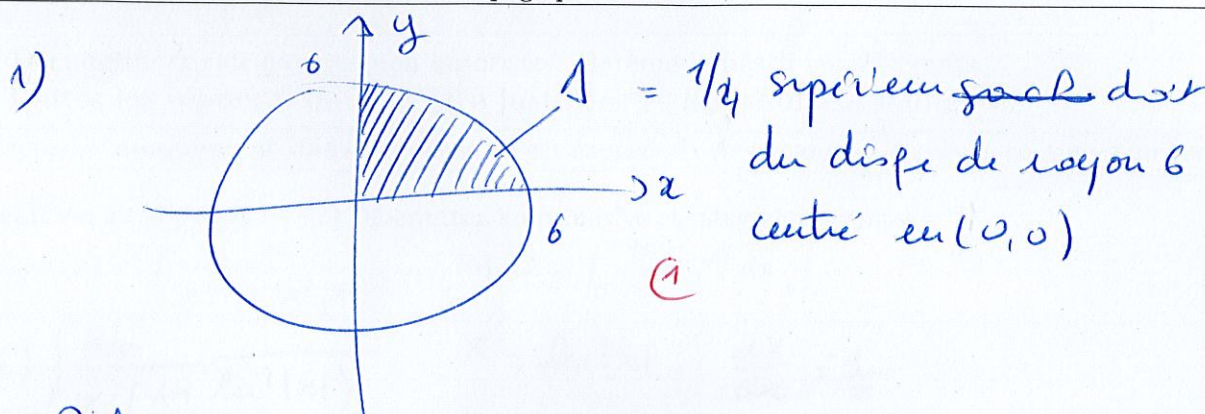 1)
y
6
Δ = 1/4 supérieur droit
du disque de rayon 6
x
6
centré en (0,0)
1